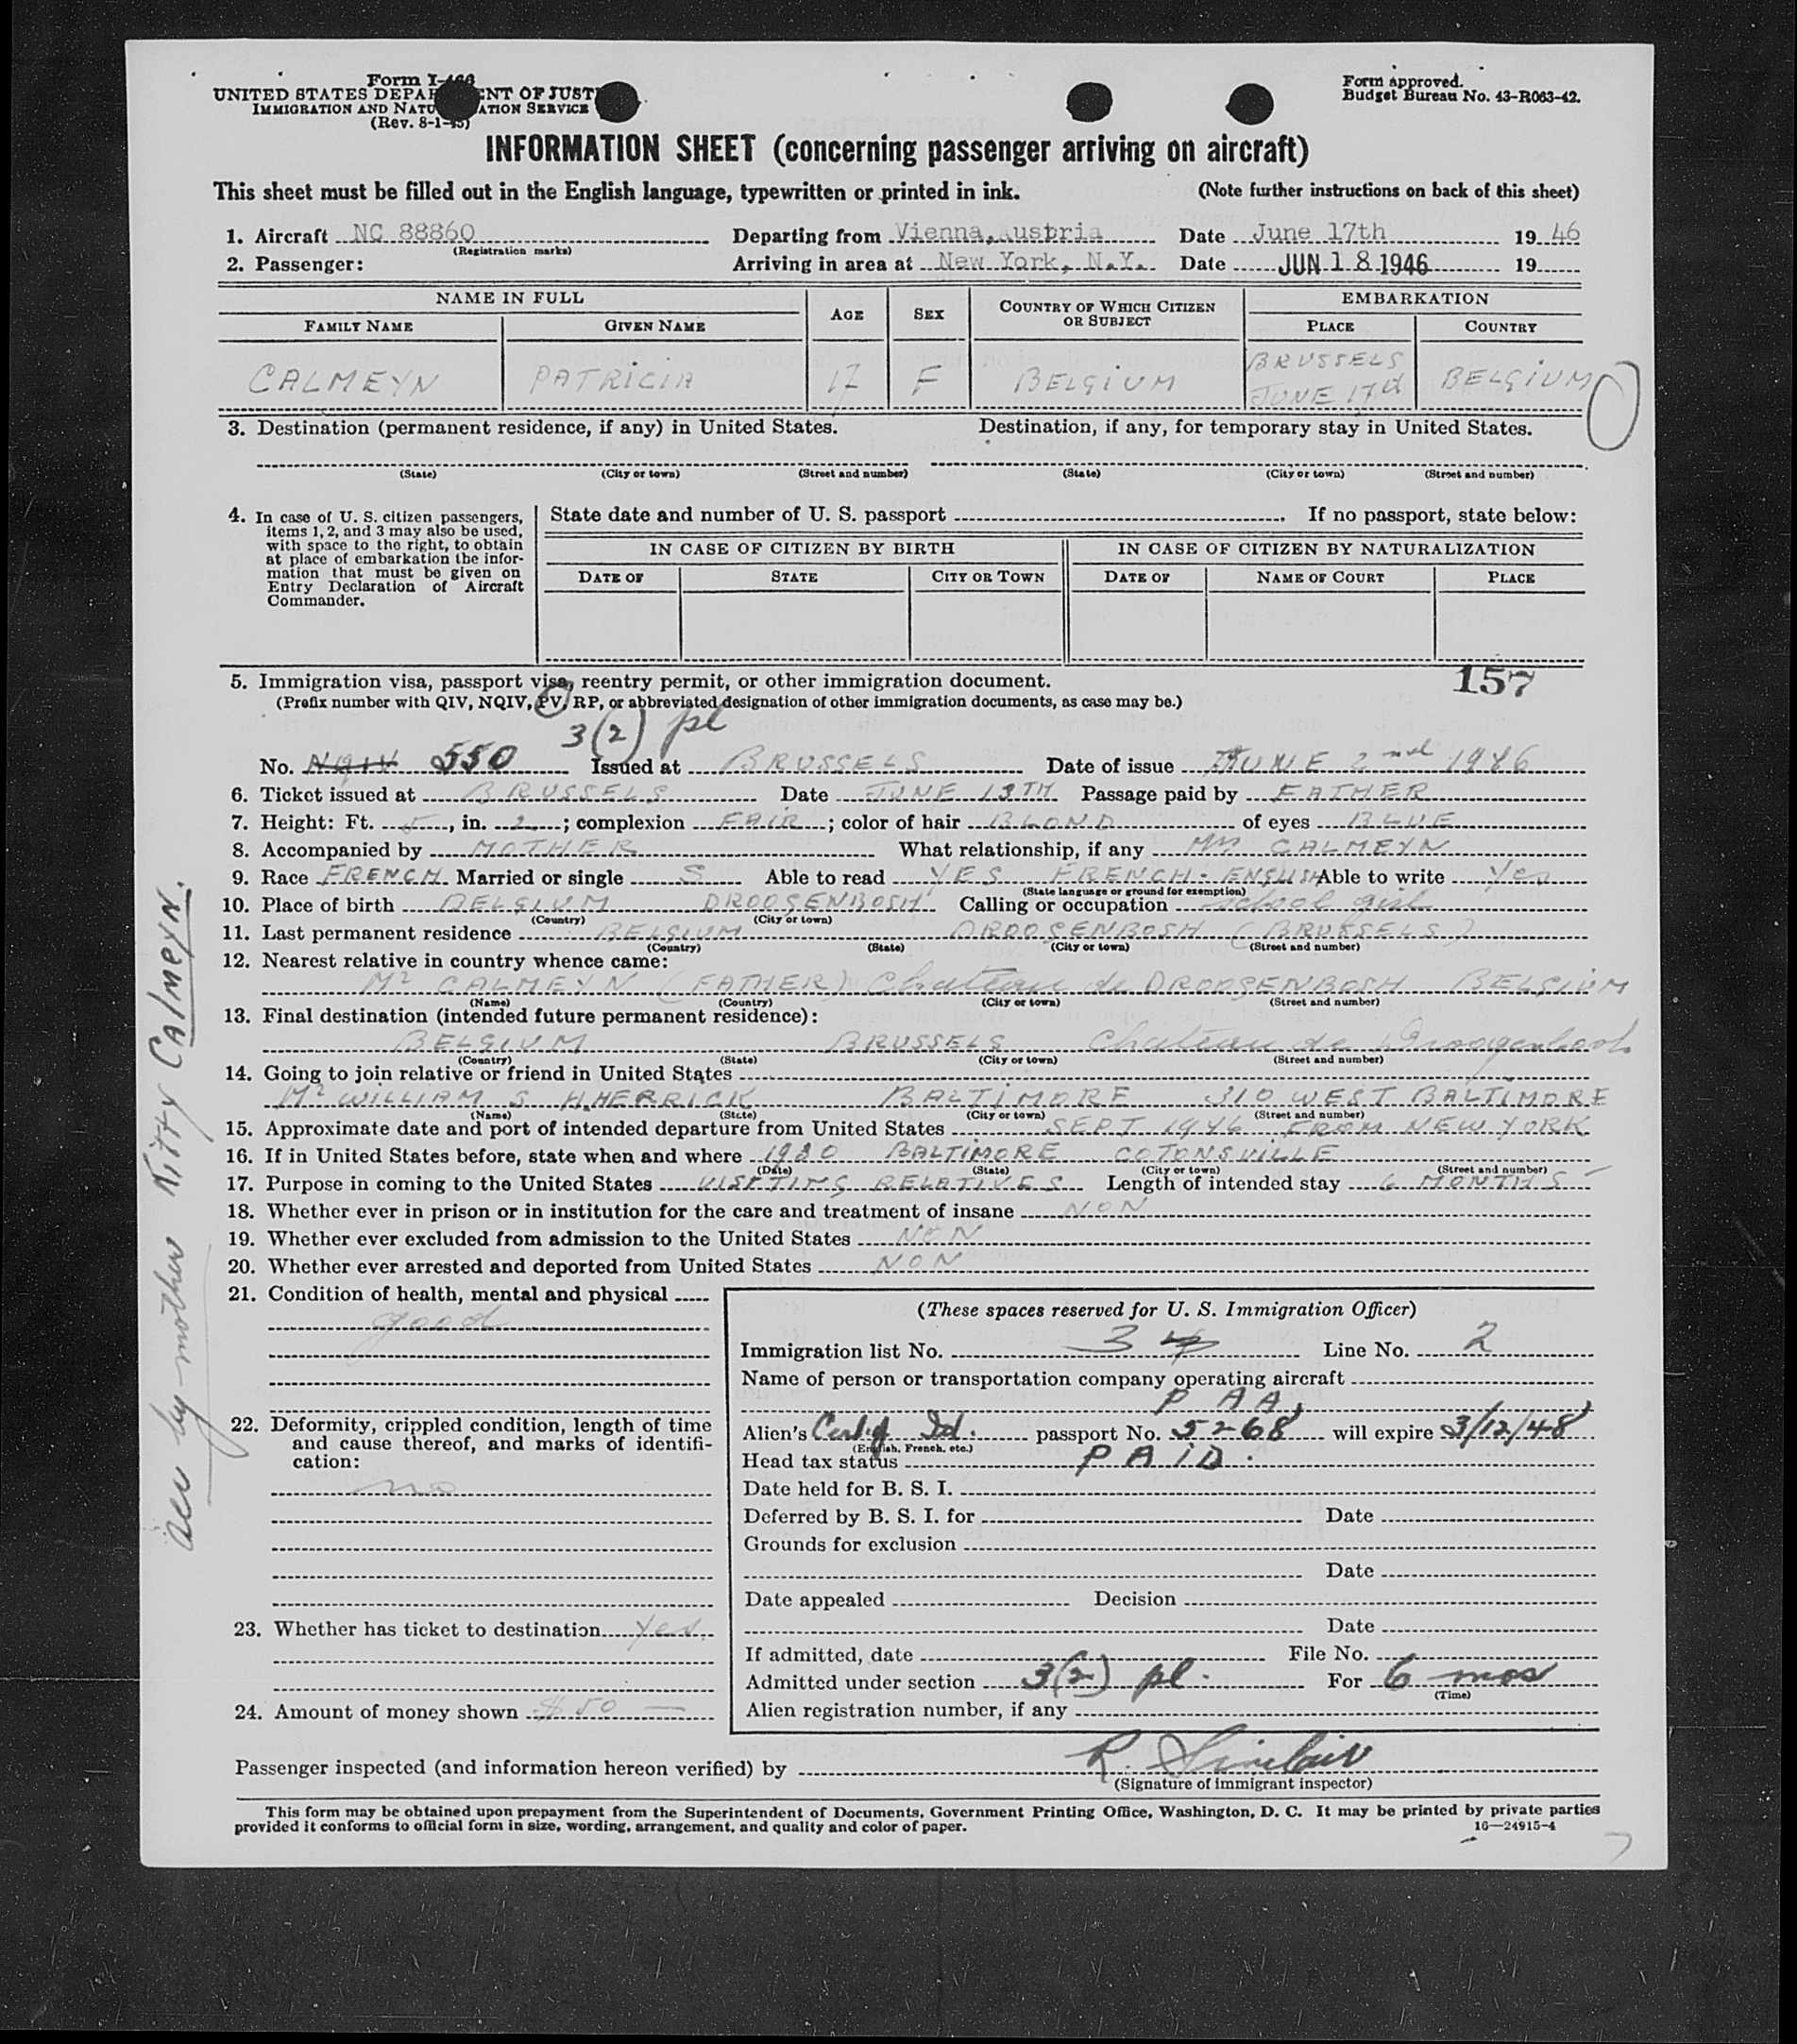 Form I-466
UNITED STATES DEPARTMENT OF JUSTICE
IMMIGRATION AND NATURALIZATION SERVICE
(Rev. 8-1-45)
Form approved.
Budget Bureau No. 43-R063-42.
INFORMATION SHEET (concerning passenger arriving on aircraft)
This sheet must be filled out in the English language, typewritten or printed in ink. (Note further instructions on back of this sheet)
1. Aircraft NC 88860 Departing from Vienna, Austria Date June 17th 19 46
(Registration marks)
2. Passenger: Arriving in area at New York, N.Y. Date JUN 18 1946 19
NAME IN FULL AGE SEX COUNTRY OF WHICH CITIZEN OR SUBJECT EMBARKATION
FAMILY NAME GIVEN NAME PLACE COUNTRY
CALMEYN PATRICIA 17 F BELGIUM BRUSSELS JUNE 17d BELGIUM
3. Destination (permanent residence, if any) in United States. Destination, if any, for temporary stay in United States.
(State) (City or town) (Street and number) (State) (City or town) (Street and number)
4. In case of U. S. citizen passengers, items 1, 2, and 3 may also be used, with space to the right, to obtain at place of embarkation the information that must be given on Entry Declaration of Aircraft Commander.
State date and number of U. S. passport . If no passport, state below:
IN CASE OF CITIZEN BY BIRTH IN CASE OF CITIZEN BY NATURALIZATION
DATE OF STATE CITY OR TOWN DATE OF NAME OF COURT PLACE
157
5. Immigration visa, passport visa, reentry permit, or other immigration document.
(Prefix number with QIV, NQIV, PV, RP, or abbreviated designation of other immigration documents, as case may be.)
3(2) pl
No. NQIV 550 Issued at BRUSSELS Date of issue JUNE 2nd 1946
6. Ticket issued at BRUSSELS Date JUNE 13TH Passage paid by FATHER
7. Height: Ft. 5, in. 2; complexion FAIR; color of hair BLOND of eyes BLUE
8. Accompanied by MOTHER What relationship, if any Mrs CALMEYN
9. Race FRENCH Married or single S Able to read YES FRENCH - ENGLISH Able to write Yes
(State language or ground for exemption)
10. Place of birth BELGIUM DROOGENBOSH Calling or occupation school girl
(Country) (City or town)
11. Last permanent residence BELGIUM DROOGENBOSH (BRUSSELS)
(Country) (State) (City or town) (Street and number)
12. Nearest relative in country whence came:
Mr CALMEYN (FATHER) Chateau de DROOGENBOSH BELGIUM
(Name) (Country) (City or town) (Street and number)
13. Final destination (intended future permanent residence):
BELGIUM BRUSSELS Chateau de Droogenbosh
(Country) (State) (City or town) (Street and number)
14. Going to join relative or friend in United States
Mr WILLIAM S H.HERRICK BALTIMORE 310 WEST BALTIMORE
(Name) (State) (City or town) (Street and number)
15. Approximate date and port of intended departure from United States SEPT 1946 FROM NEW YORK
16. If in United States before, state when and where 1930 BALTIMORE COTONSVILLE
(Date) (State) (City or town) (Street and number)
17. Purpose in coming to the United States VISITING RELATIVES Length of intended stay 6 MONTHS
18. Whether ever in prison or in institution for the care and treatment of insane NON
19. Whether ever excluded from admission to the United States NON
20. Whether ever arrested and deported from United States NON
21. Condition of health, mental and physical
good
22. Deformity, crippled condition, length of time and cause thereof, and marks of identification:
no
23. Whether has ticket to destination Yes.
24. Amount of money shown $ 50 —
(These spaces reserved for U. S. Immigration Officer)
Immigration list No. 3 Line No. 2
Name of person or transportation company operating aircraft
P A A
Alien's Certif Id. passport No. 5268 will expire 3/12/48
(English, French, etc.)
Head tax status PAID.
Date held for B. S. I.
Deferred by B. S. I. for Date
Grounds for exclusion
Date
Date appealed Decision
Date
If admitted, date File No.
Admitted under section 3(2) pl. For 6 mos
(Time)
Alien registration number, if any
Passenger inspected (and information hereon verified) by R. Sinclair
(Signature of immigrant inspector)
This form may be obtained upon prepayment from the Superintendent of Documents, Government Printing Office, Washington, D. C. It may be printed by private parties
provided it conforms to official form in size, wording, arrangement, and quality and color of paper. 16—24915-4
acc by mother Kitty CALMEYN.